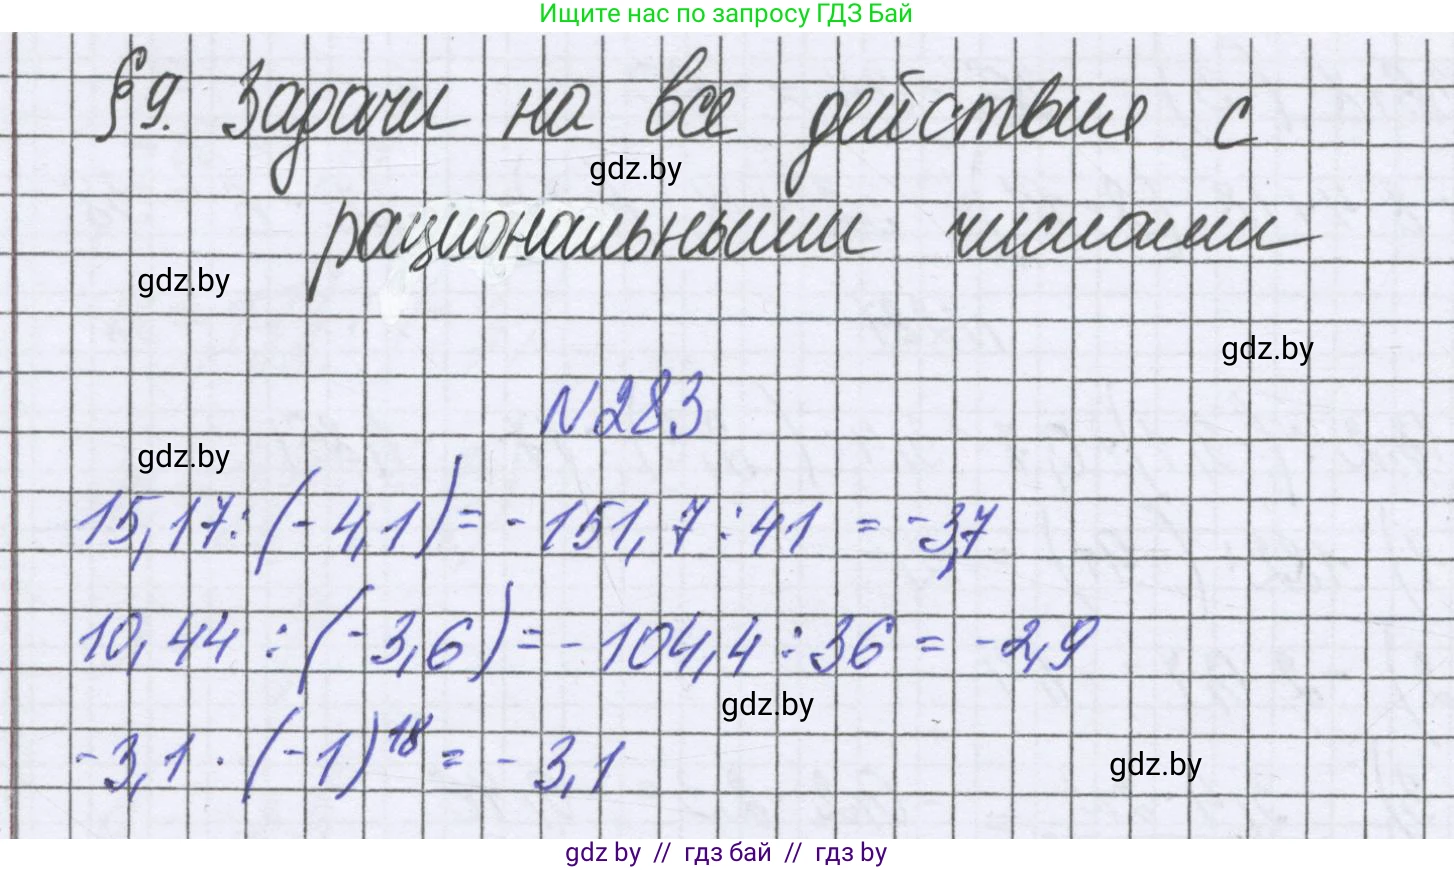 Ищите нас по запросу ГДЗ Бай
§9. Задачи на все действия с
gdz.by
рациональными числами
gdz.by
gdz.by
N283
gdz.by
15,17:(-4,1)=-151,7:41 = -3,7
10,44 : (-3,6)=-104,4:36 = -2,9
gdz.by
-3,1 · (-1)^18 = -3,1
gdz.by
gdz by // гдз бай // гдз by